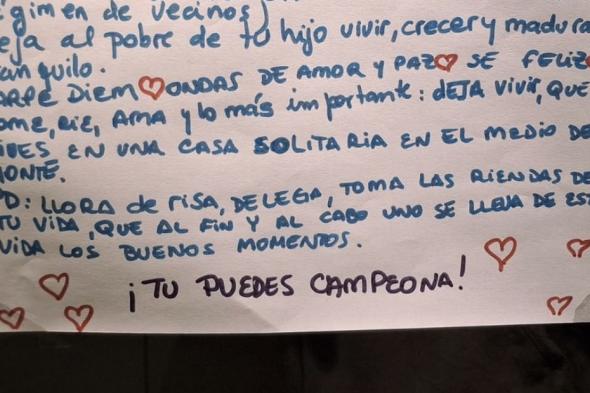 gimen de vecinos)
eja al pobre de tu hijo vivir, crecer y madura
an quilo.
ARPE DIEM ONDAS DE AMOR Y PAZ SE FELIZ
ome, RiE, AMA y lo más importante: dEJA ViViR, QUE
iVES EN UNA CASA SOLiTARiA EN EL MEDiO DE
ONTE.
D: LLORA de risa, DELEGA, TOMA LAS RiENDAS DE
TU ViDA, QUE AL FiN Y AL CABO UNO SE LLEVA DE EST
ViDA LOS BUENOS MOMENTOS.
¡TU PUEDES CAMPEONA!